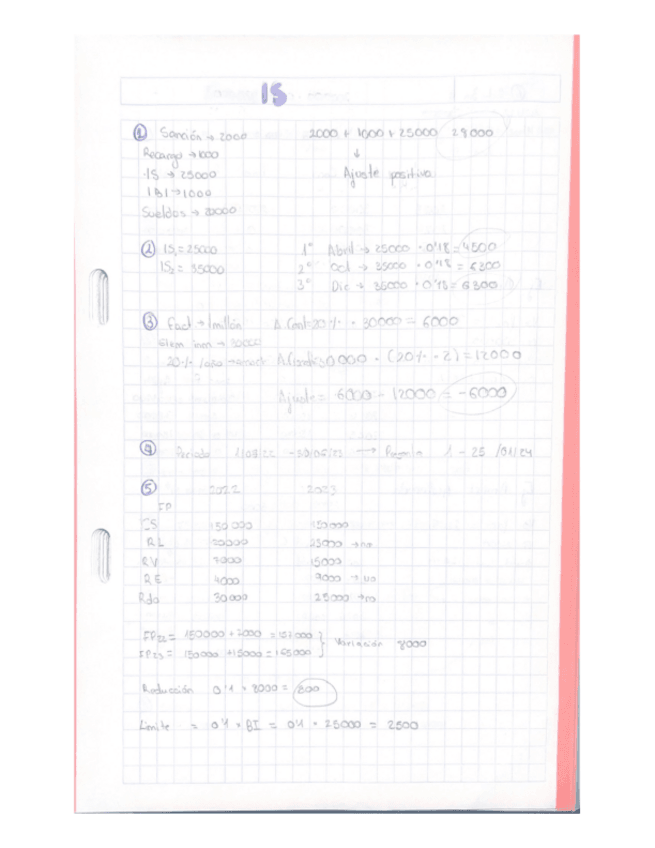 IS
① Sanción → 2000 2000 + 1000 + 25000 28000
Recargo → 1000 ↓
IS → 25000 Ajuste positivo
IBI → 1000
Sueldos →
② IS₁ = 25000 1º Abril → 25000 · 0'18 = 4500
IS₂ = 35000 2º Oct → 35000 · 0'18 = 6300
3º Dic → 35000 · 0'18 = 6300
③ Fact → 1 millón A Cont: 20% · 30000 = 6000
→ 30000
20% / año → · (20% · 2) = 12000
Ajuste = 6000 - 12000 = -6000
④ Periodo → 1 - 25 /01/24
⑤ 2022 2023
FP
CS 150000 150000
RL 20000 23000 → no
RV 7000 15000
RE 4000 9000 → no
Rdo 30000 25000 → no
FP22 = 150000 + 7000 = 157000 } Variación 8000
FP23 = 150000 + 15000 = 165000
Reducción 0'1 · 8000 = 800
Límite = 0'1 · BI = 0'1 · 25000 = 2500